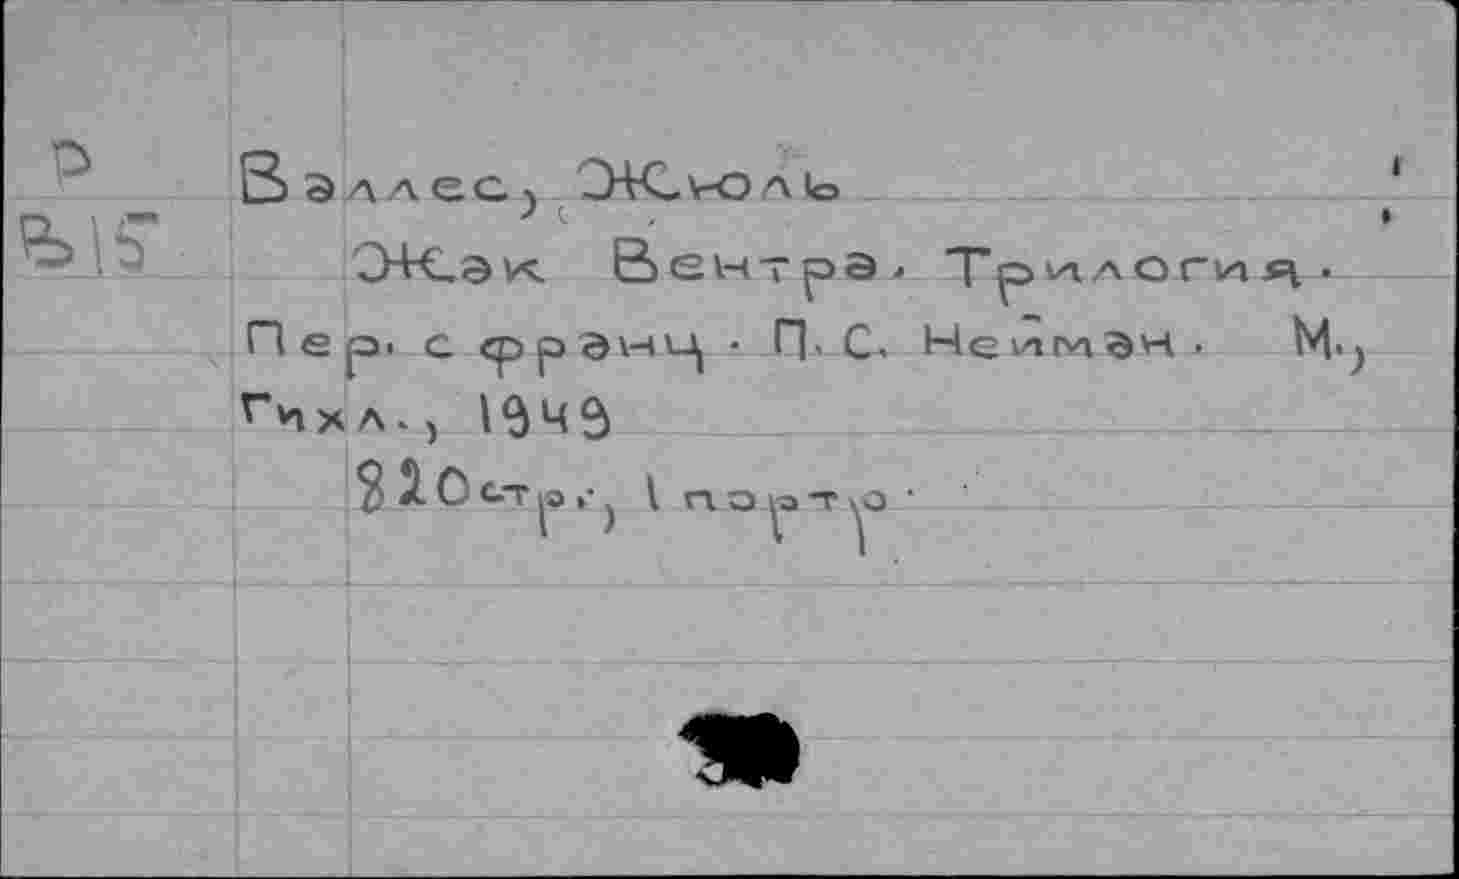 Р
В15
Валлес, Жюль
Жак Вентра. Трилогия.
Пер. с франц. П. С. Нейман. М.,
Гихл., 1949
820стр., 1 портр.